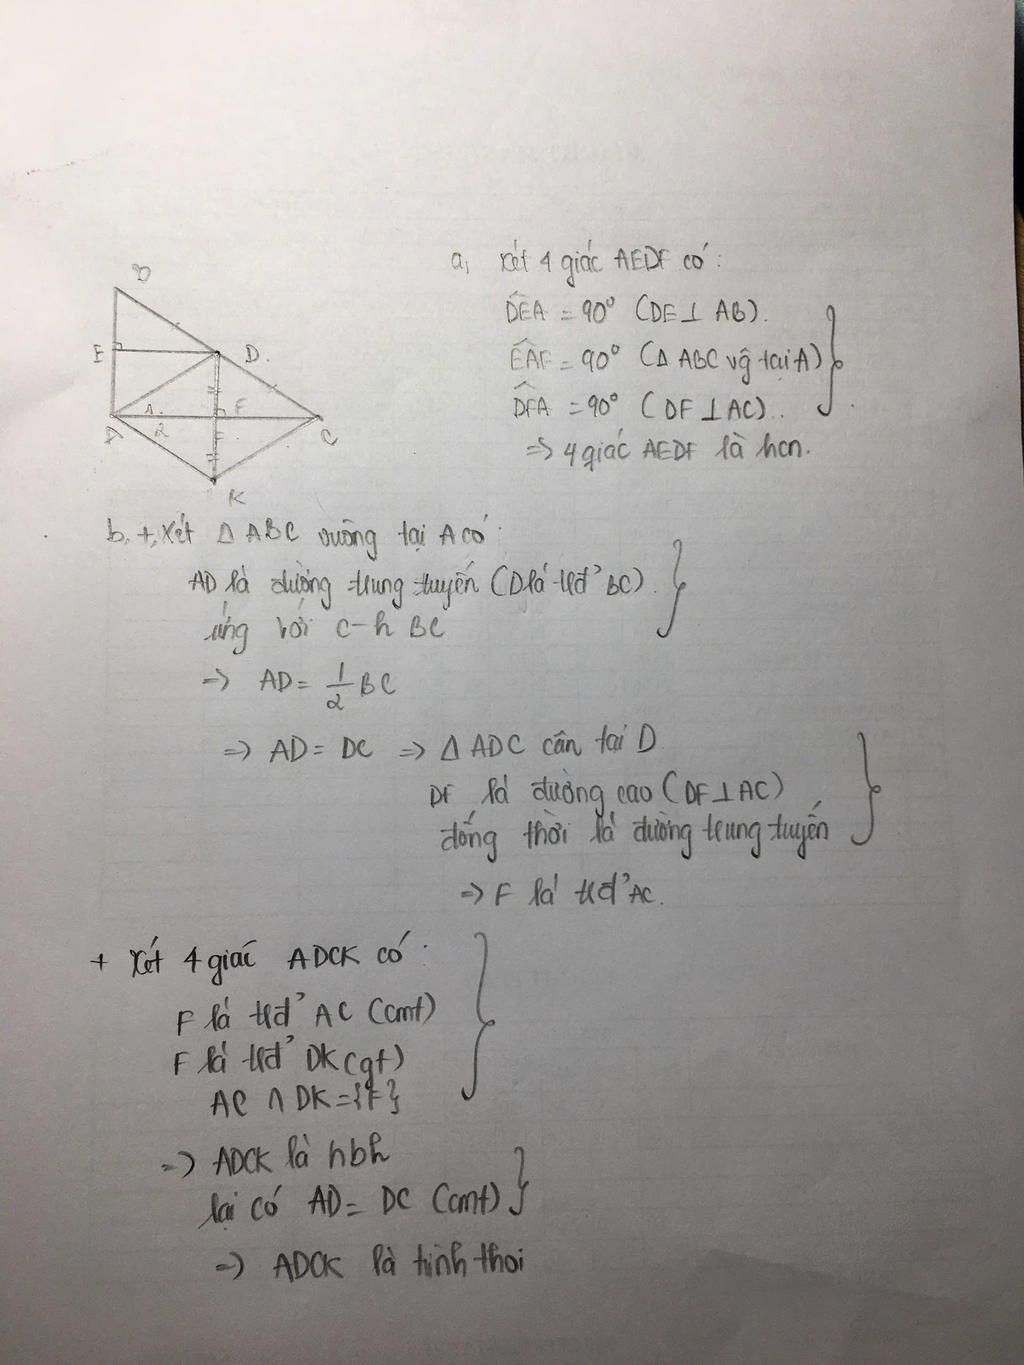 B
E
D.
1.
F
A
2
F
C
K
a, Xét 4 giác AEDF có:
DÊA = 90° (DE⊥AB).
EÂF = 90° (Δ ABC vg tại A)
DF̂A = 90° (DF⊥AC).
=> 4 giác AEDF là hcn.
b, +, Xét Δ ABC vuông tại A có:
AD là đường trung tuyến (D là trđ' BC).
ứng với c-h BC
=> AD = 1/2 BC
=> AD = DC => Δ ADC cân tại D
DF là đường cao (DF⊥AC)
đồng thời là đường trung tuyến
=> F là trđ' AC.
+ Xét 4 giác ADCK có:
F là trđ' AC (cmt)
F là trđ' DK (gt)
AC ∩ DK = {F}
=> ADCK là hbh
lại có AD = DC (cmt)
=> ADCK là hình thoi